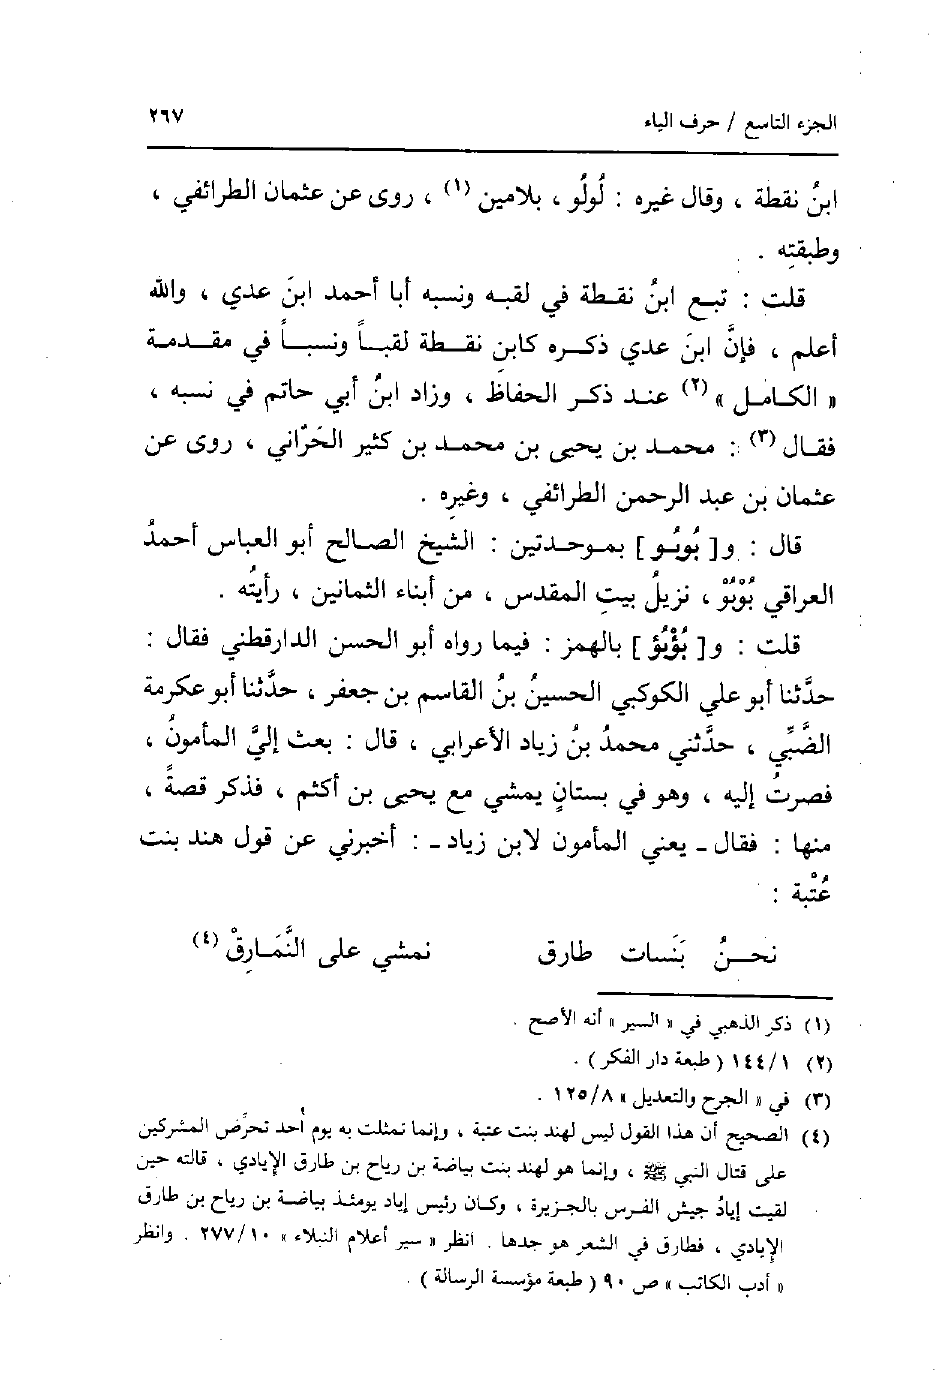 الجزء التاسع / حرف الياء ٢٦٧
ابنُ نقطة ، وقال غيره : لُولُو ، بلامين (١) ، روى عن عثمان الطرائفي ،
وطبقتِه .
قلت : تبع ابنُ نقـطة في لقبه ونسبه أبا أحمد ابنَ عدي ، والله
أعلم ، فإنَّ ابنَ عدي ذكـره كابن نقـطة لقبـاً ونسبـاً في مقـدمة
« الكـامـل » (٢) عنـد ذكـر الحفاظ ، وزاد ابنُ أبي حاتم في نسبه ،
فقـال (٣) : محمـد بن يحيى بن محمـد بن كثير الحَرّاني ، روى عن
عثمان بن عبد الرحمن الطرائفي ، وغيرِه .
قال : و[ بُوبُـو ] بمـوحـدتين : الشيخ الصـالح أبو العباس أحمدُ
العراقي بُوْبُوْ ، نزيلُ بيتِ المقدس ، من أبناء الثمانين ، رأيتُه .
قلت : و[ بُؤْبُؤ ] بالهمز : فيما رواه أبو الحسن الدارقطني فقال :
حدَّثنا أبو علي الكوكبي الحسينُ بنُ القاسم بن جعفر ، حدَّثنا أبو عكرمة
الضَّبِّي ، حدَّثني محمدُ بنُ زياد الأعرابي ، قال : بعث إليَّ المأمونُ ،
فصرتُ إليه ، وهو في بستانٍ يمشي مع يحيى بن أكثم ، فذكر قصةً ،
منها : فقال ـ يعني المأمون لابن زياد ـ : أخبرني عن قول هند بنت
عُتْبة :
نحـنُ بَنَـات طارق نمشي على النَّمَـارِقْ (٤)
(١) ذكر الذهبي في « السير » أنه الأصح .
(٢) ١٤٤/١ ( طبعة دار الفكر ) .
(٣) في « الجرح والتعديل » ١٢٥/٨ .
(٤) الصحيح أن هذا القول ليس لهند بنت عتبة ، وإنما تمثلت به يوم أُحد تحرِّض المشركين
على قتال النبي ﷺ ، وإنما هو لهند بنت بياضة بن رياح بن طارق الإيادي ، قالته حين
لقيت إيادُ جيش الفـرس بالجـزيرة ، وكـان رئيس إياد يومئـذ بياضـة بن رياح بن طارق
الإيادي ، فطارق في الشعر هو جدها . انظر « سير أعلام النبلاء » ٢٧٧/١٠ . وانظر
« أدب الكاتب » ص ٩٠ ( طبعة مؤسسة الرسالة ) .